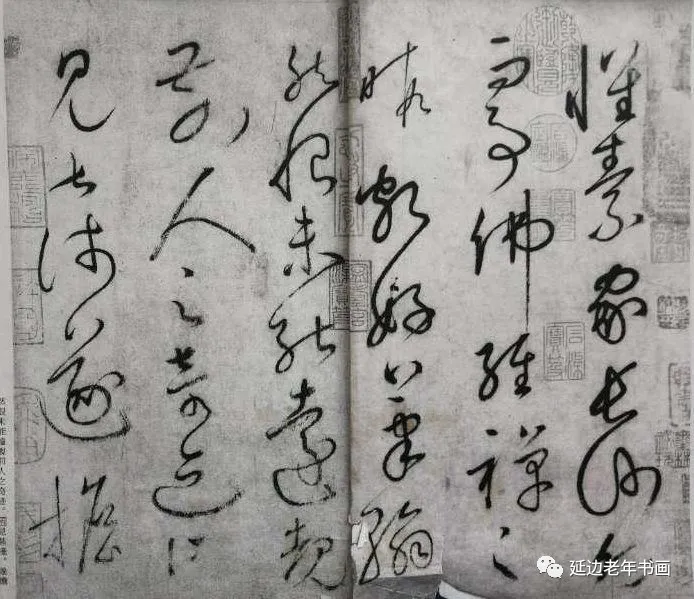 懷素家長沙幼
而事佛經禪之
暇頗好筆翰
然恨未能遠覩
前人之奇迹所
見甚淺遂擔
延边老年书画